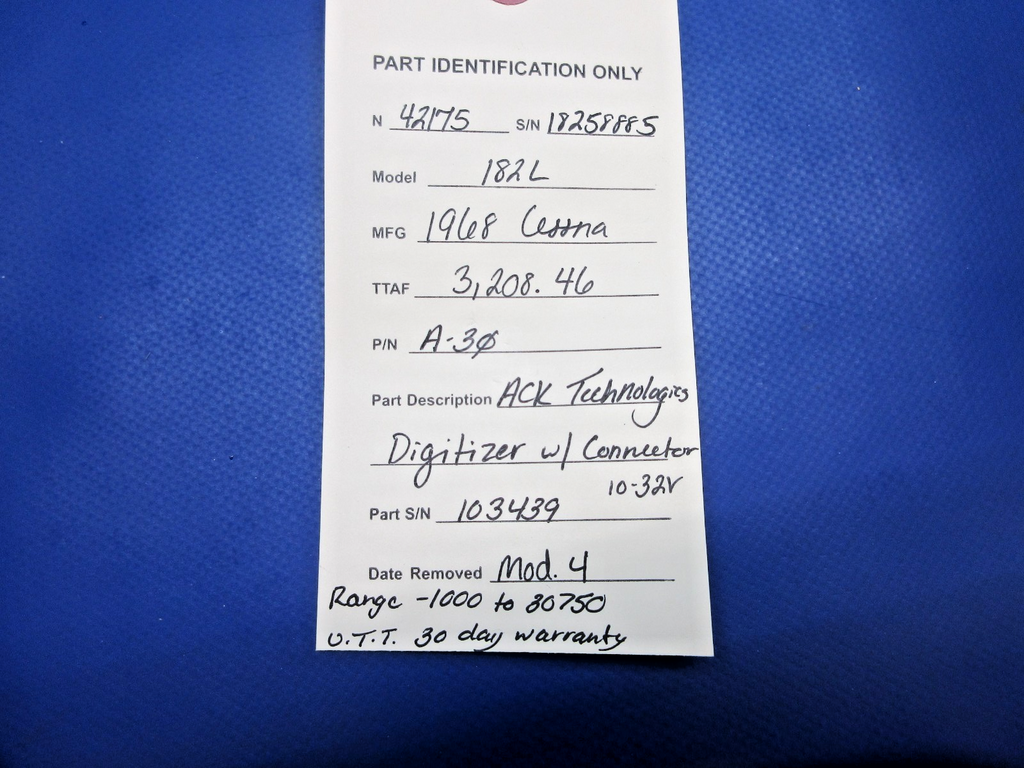 PART IDENTIFICATION ONLY
N 42175 S/N 18258885
Model 182L
MFG 1968 Cessna
TTAF 3,208.46
P/N A-3Ø
Part Description ACK Technologies
Digitizer w/ Connector
10-32V
Part S/N 103439
Date Removed Mod. 4
Range -1000 to 30750
U.T.T. 30 day warranty